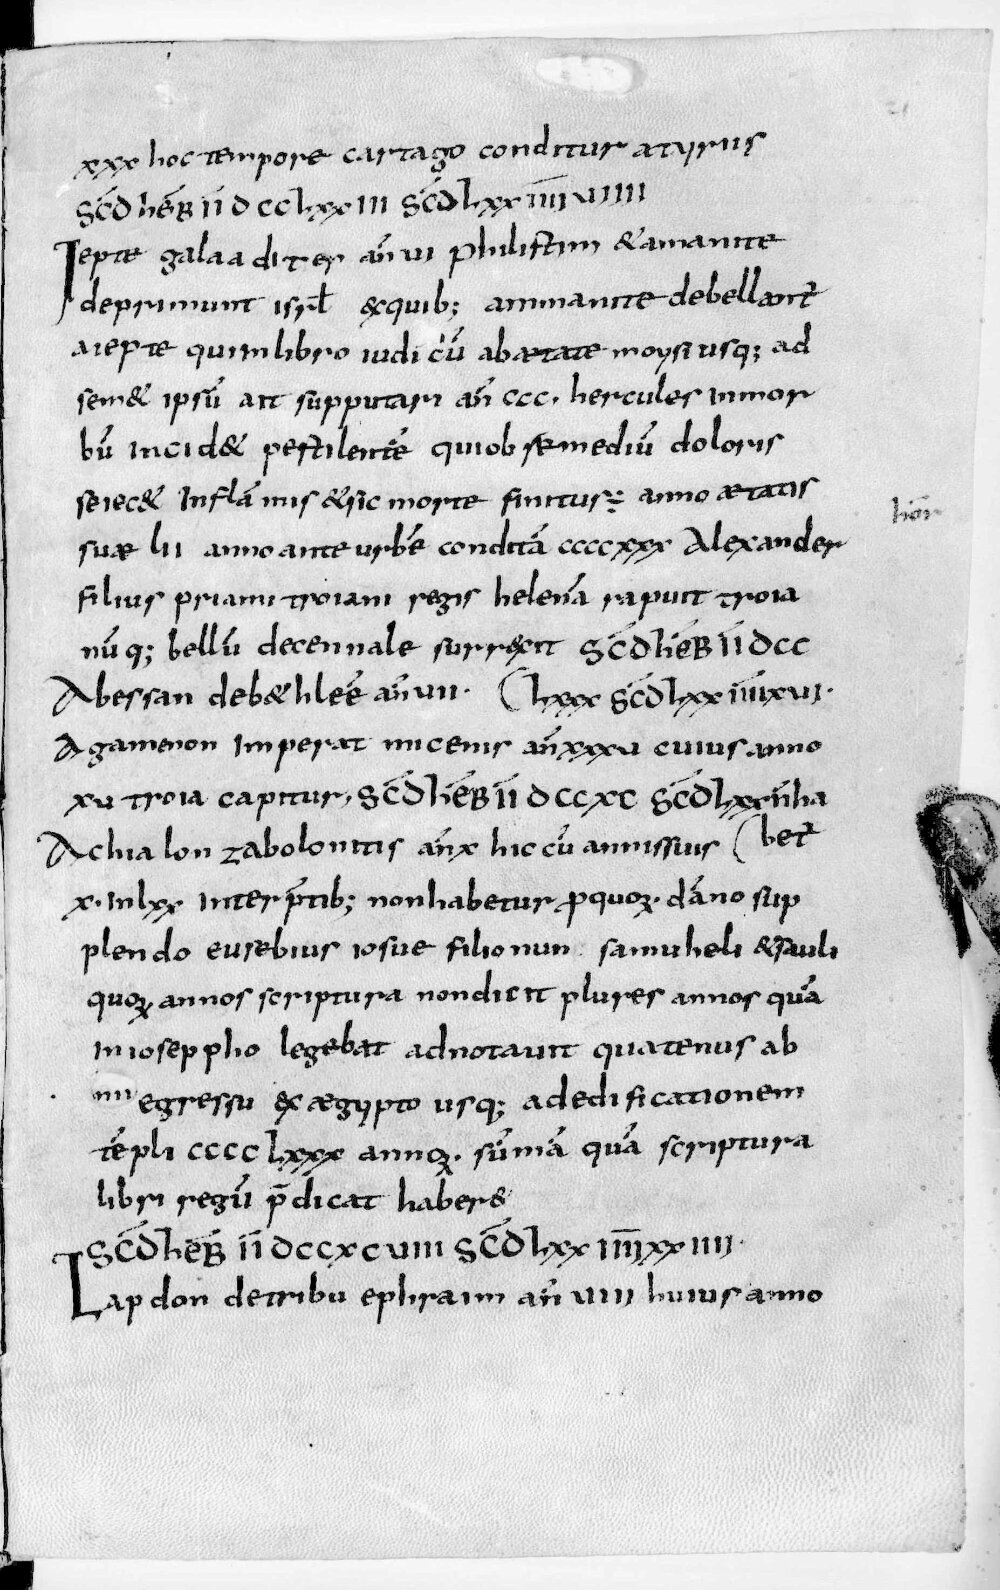 xxx hoc tempore cartago conditur atyriis
Sc̄d heb̄ īī dcclxxiii Sc̄d lxx īīīī viiii
Iepte galaaditer an̄ vi philistim & amanite
deprimunt isr̄l exquib; ammanite debellant̄
aiepte qui inlibro iudicū abætate moysi usq; ad
sem& ipsū ait supputari an̄ ccc. hercules inmor
bū incid& pestilentē quiob remediū doloris
seiec& inflāmis &sic morte finitus; anno ætatis
suæ lii anno ante urbē conditā ccccxxx Alexander
filius priami troiani regis helenā rapuit troia
nūq; bellū decennale surrexit Sc̄d heb̄ īī dcc
Abessan debethleē an̄ vii. (lxxx Sc̄d lxx īīīī xvi.
Agamenon imperat micenis an̄ xxxv cuius anno
xv troia capitur, Sc̄d heb̄ īī dccxc Sc̄d lxx n̄ ha
Achialon zabolonitis an̄ x hic cū annis suis (bet̄
x. inlxx interp̄tib; nonhabetur ꝓquoꝝ. dāno sup
plendo eusebius iosue filio nun samuheli &sauli
quoꝝ annos scriptura nondicit plures annos quā
iniosseppho legebat adnotavit quatenus ab
nn egressu exægypto usq; adedificationem
tēpli cccclxxx annoꝝ. sūmā quā scriptura
libri regū p̄dicat haber&
Sc̄d heb̄ īī dccxcviii Sc̄d lxx īīīī xxiiii.
Lapdon detribu ephraim an̄ viii huius anno